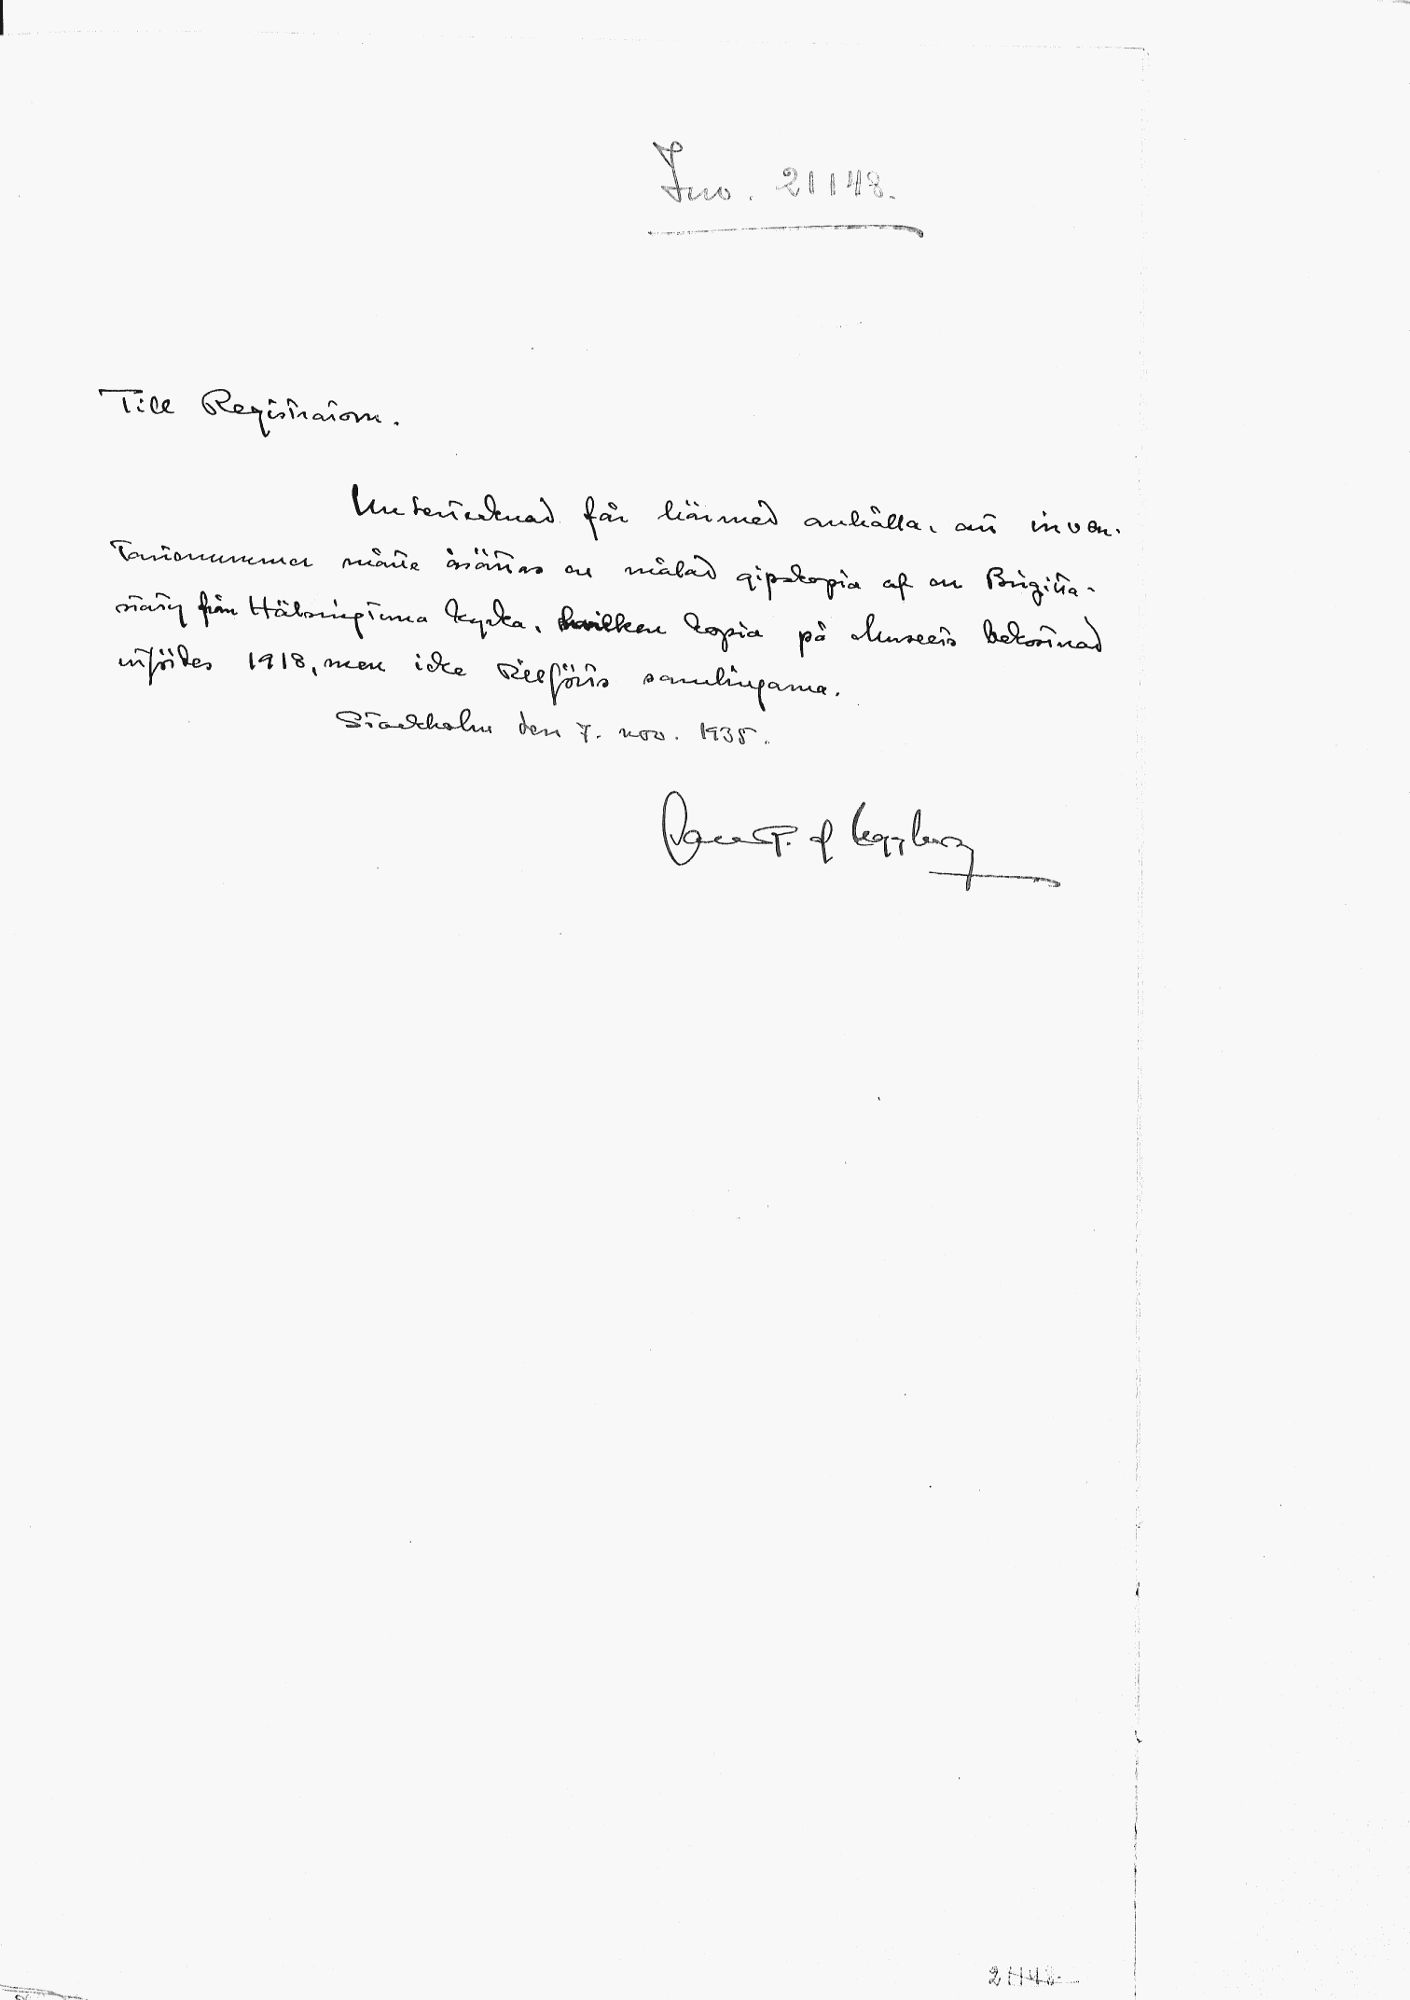 Inv. 21148.
Till Registratorn.
Undertecknad får härmed anhålla, att inven-
tarienummer måtte åsättas en målad gipskopia af en Birgitta-
staty från Hälsingtuna kyrka, hvilken kopia på Museets bekostnad
utfördes 1918, men icke tillförts samlingarna.
Stockholm den 7. nov. 1935.
af Ugglas
21148